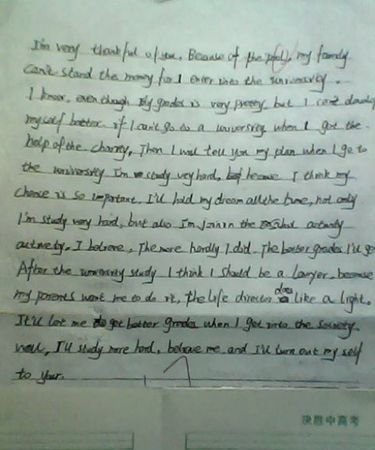 I'm very thankful of you. Because of the , my family
can't stand the money for I enter into the university.
I know, even though my grades is very pretty but I can't
myself better. if I can't go to a university when I got the
help of the charity, Then I will tell you my plan when I go to
the university I'm study very hard, because I think my
chance is so important. I'll hold my dream all the time, not only
I'm study very hard, but also I'm join in the activity
activety. I believe, The more hardly I did. The better grades I'll go
After the university study I think I should be a lawyer, because
my parents want me to do it, The life director does like a light,
It'll let me get better grades when I get into the society.
well, I'll study more hard, believe me and I'll turn out my self
to your.
决胜中高考